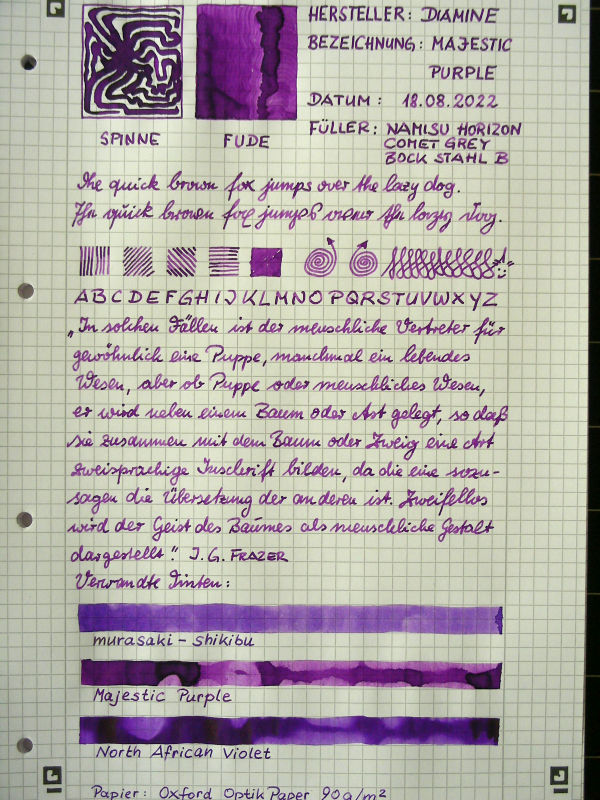 HERSTELLER: DIAMINE
BEZEICHNUNG: MAJESTIC
PURPLE
DATUM: 18.08.2022
FÜLLER: NAMISU HORIZON
COMET GREY
BOCK STAHL B
SPINNE FUDE
The quick brown fox jumps over the lazy dog.
The quick brown fox jumps over the lazy dog.
ABCDEFGHIJKLMNOPQRSTUVWXYZ
„In solchen Fällen ist der menschliche Vertreter für
gewöhnlich eine Puppe, manchmal ein lebendes
Wesen, aber ob Puppe oder menschliches Wesen,
er wird neben einem Baum oder Ast gelegt, so daß
sie zusammen mit dem Baum oder Zweig eine Art
zweisprachige Inschrift bilden, da die eine sozu-
sagen die Übersetzung der anderen ist. Zweifellos
wird der Geist des Baumes als menschliche Gestalt
dargestellt." J. G. FRAZER
Verwandte Tinten:
murasaki - shikibu
Majestic Purple
North African Violet
Papier: Oxford Optik Paper 90g/m²